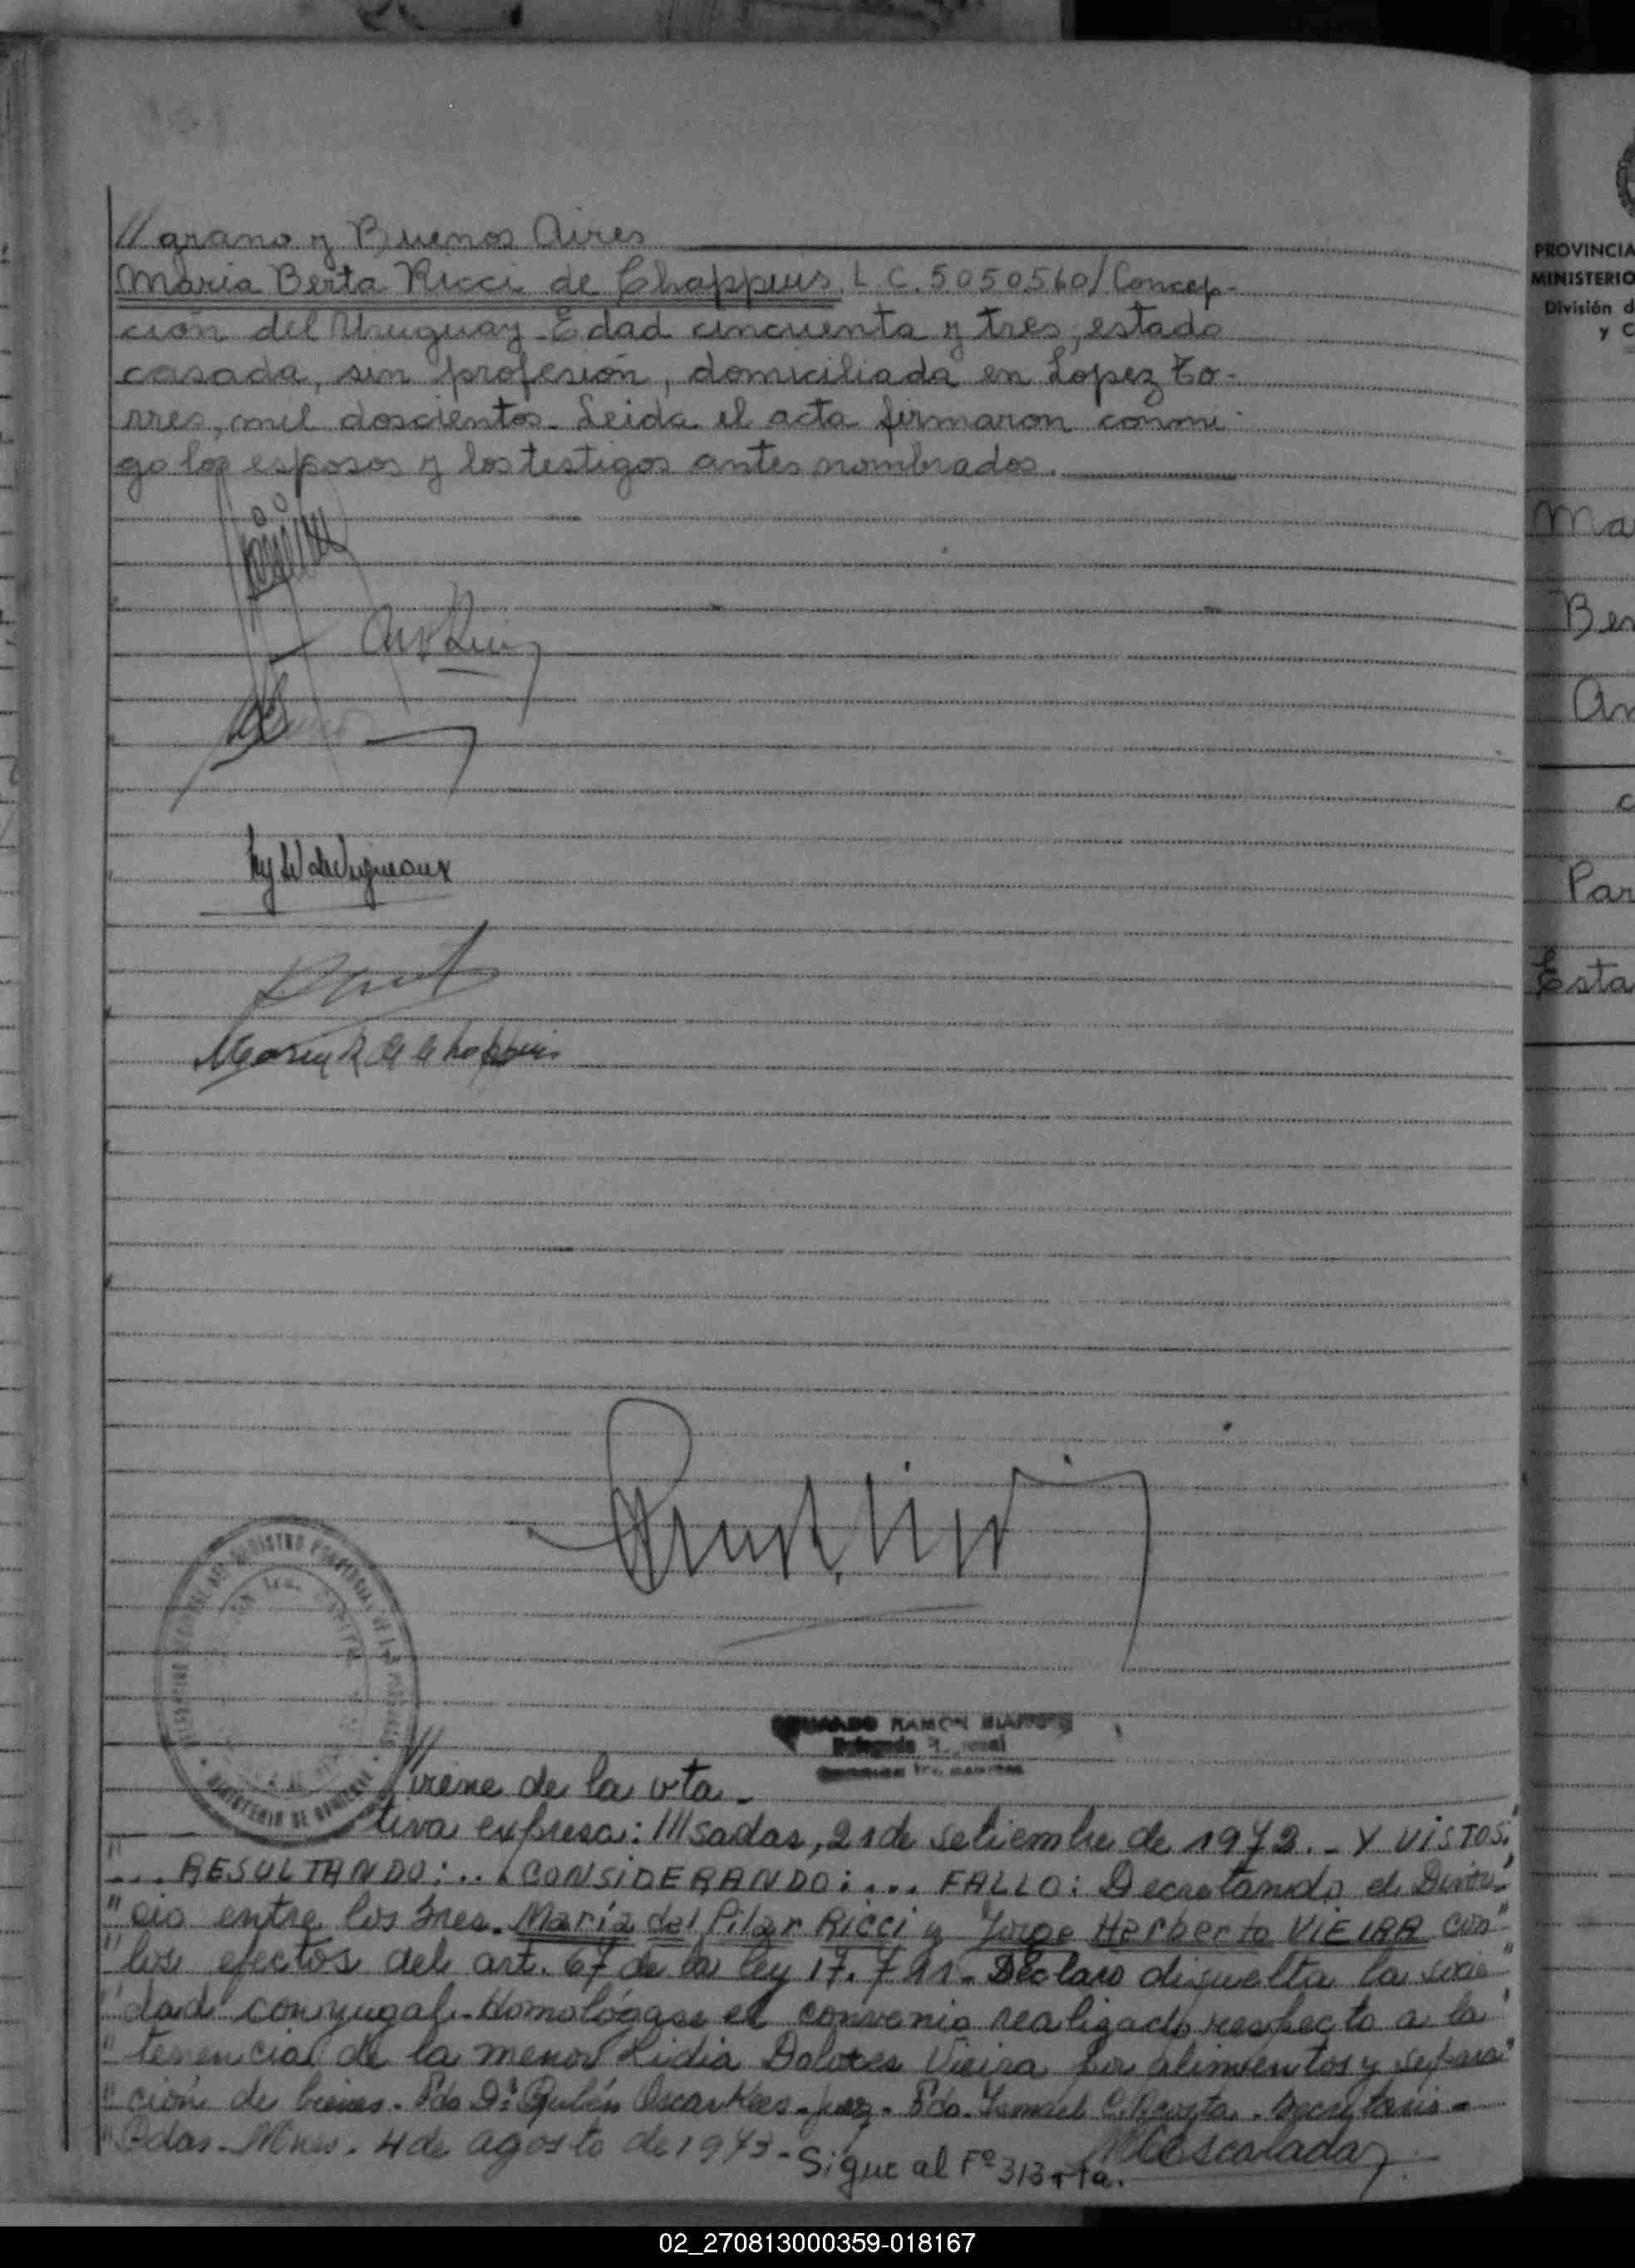 //grano y Buenos Aires
Maria Berta Ricci de Chappuis, L.C. 5050560/Concep-
ción del Uruguay - Edad cincuenta y tres, estado
casada, sin profesión, domiciliada en Lopez To-
rres, mil doscientos. Leida el acta firmaron conmi
go los esposos y los testigos antes nombrados.
RAMON
//viene de la vta.
tiva expresa: ///sadas, 21 de setiembre de 1972. - Y VISTOS:
"... RESULTANDO: ... CONSIDERANDO: ... FALLO: Decretando el Divor-"
"cio entre los Sres. María del Pilar RICCI y Jorge Herberto VIEIRA con"
"los efectos del art. 67 de la ley 17.711. Declaro disuelta la socie"
"dad conyugal. Homológase el convenio realizado respecto a la"
"tenencia de la menor Lidia Dolores Vieira por alimentos y separa"
"ción de bienes. Fdo Dr. Rubén Oscar - Juez. Fdo. Ismael C. Acosta. Secretario -
"Pdas. Mnes. 4 de agosto de 1973 - Escalada
Sigue al Fº 313 vta.
PROVINCIA
MINISTERIO
División d
y C
Ma
Ber
An
c
Par
Esta
02_270813000359-018167